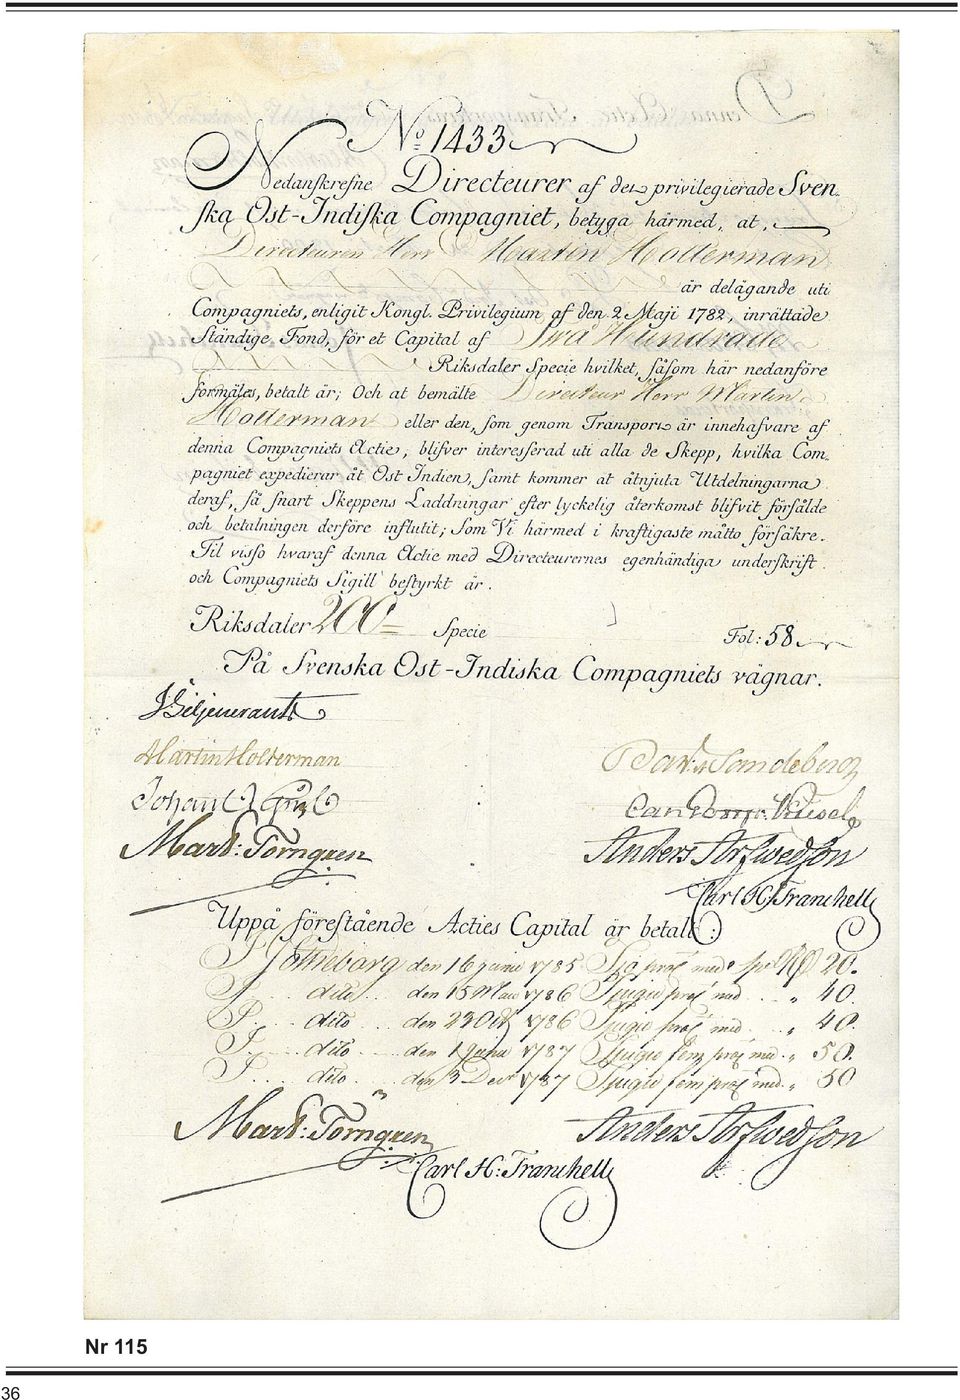 No 1433
Nedanskrefne Directeurer af den privilegierade Sven-
ska Ost-Indiska Compagniet, betyga härmed, at,
Directeuren Herr Martin Holterman
är delägande uti
Compagniets, enligit Kongl. Privilegium af den 2 Maji 1782, inrättade
Ständige Fond, för et Capital af Twå Hundrade
Riksdaler Specie hvilket, såsom här nedanföre
förmäles, betalt är; Och at bemälte Directeur Herr Martin
Holterman eller den, som genom Transport är innehafvare af
denna Compagniets Actie, blifver interesserad uti alla de Skepp, hvilka Com-
pagniet expedierar åt Ost Indien, samt kommer at åtnjuta Utdelningarna
deraf, så snart Skeppens Laddningar efter lyckelig återkomst blifvit försålde
och betalningen derföre influtit; som Vi härmed i kraftigaste måtto försäkre.
Til visso hvaraf denna Actie med Directeurernes egenhändiga underskrift
och Compagniets Sigill bestyrkt är.
Riksdaler 200 Specie Fol: 58
På Svenska Ost-Indiska Compagniets vägnar.
Martin Holterman
Mart: Törngren Anders Arfwedson
Carl H: Tranchell
Uppå förestående Acties Capital är betalt:
Götheborg den 16 Junii 1785 20.
dito den 15 1786 40.
dito den 1786 40.
dito den 1 1787 50.
dito den 3 Decr 1787 50
Mart: Törngren Anders Arfwedson
Carl H: Tranchell
Nr 115
36